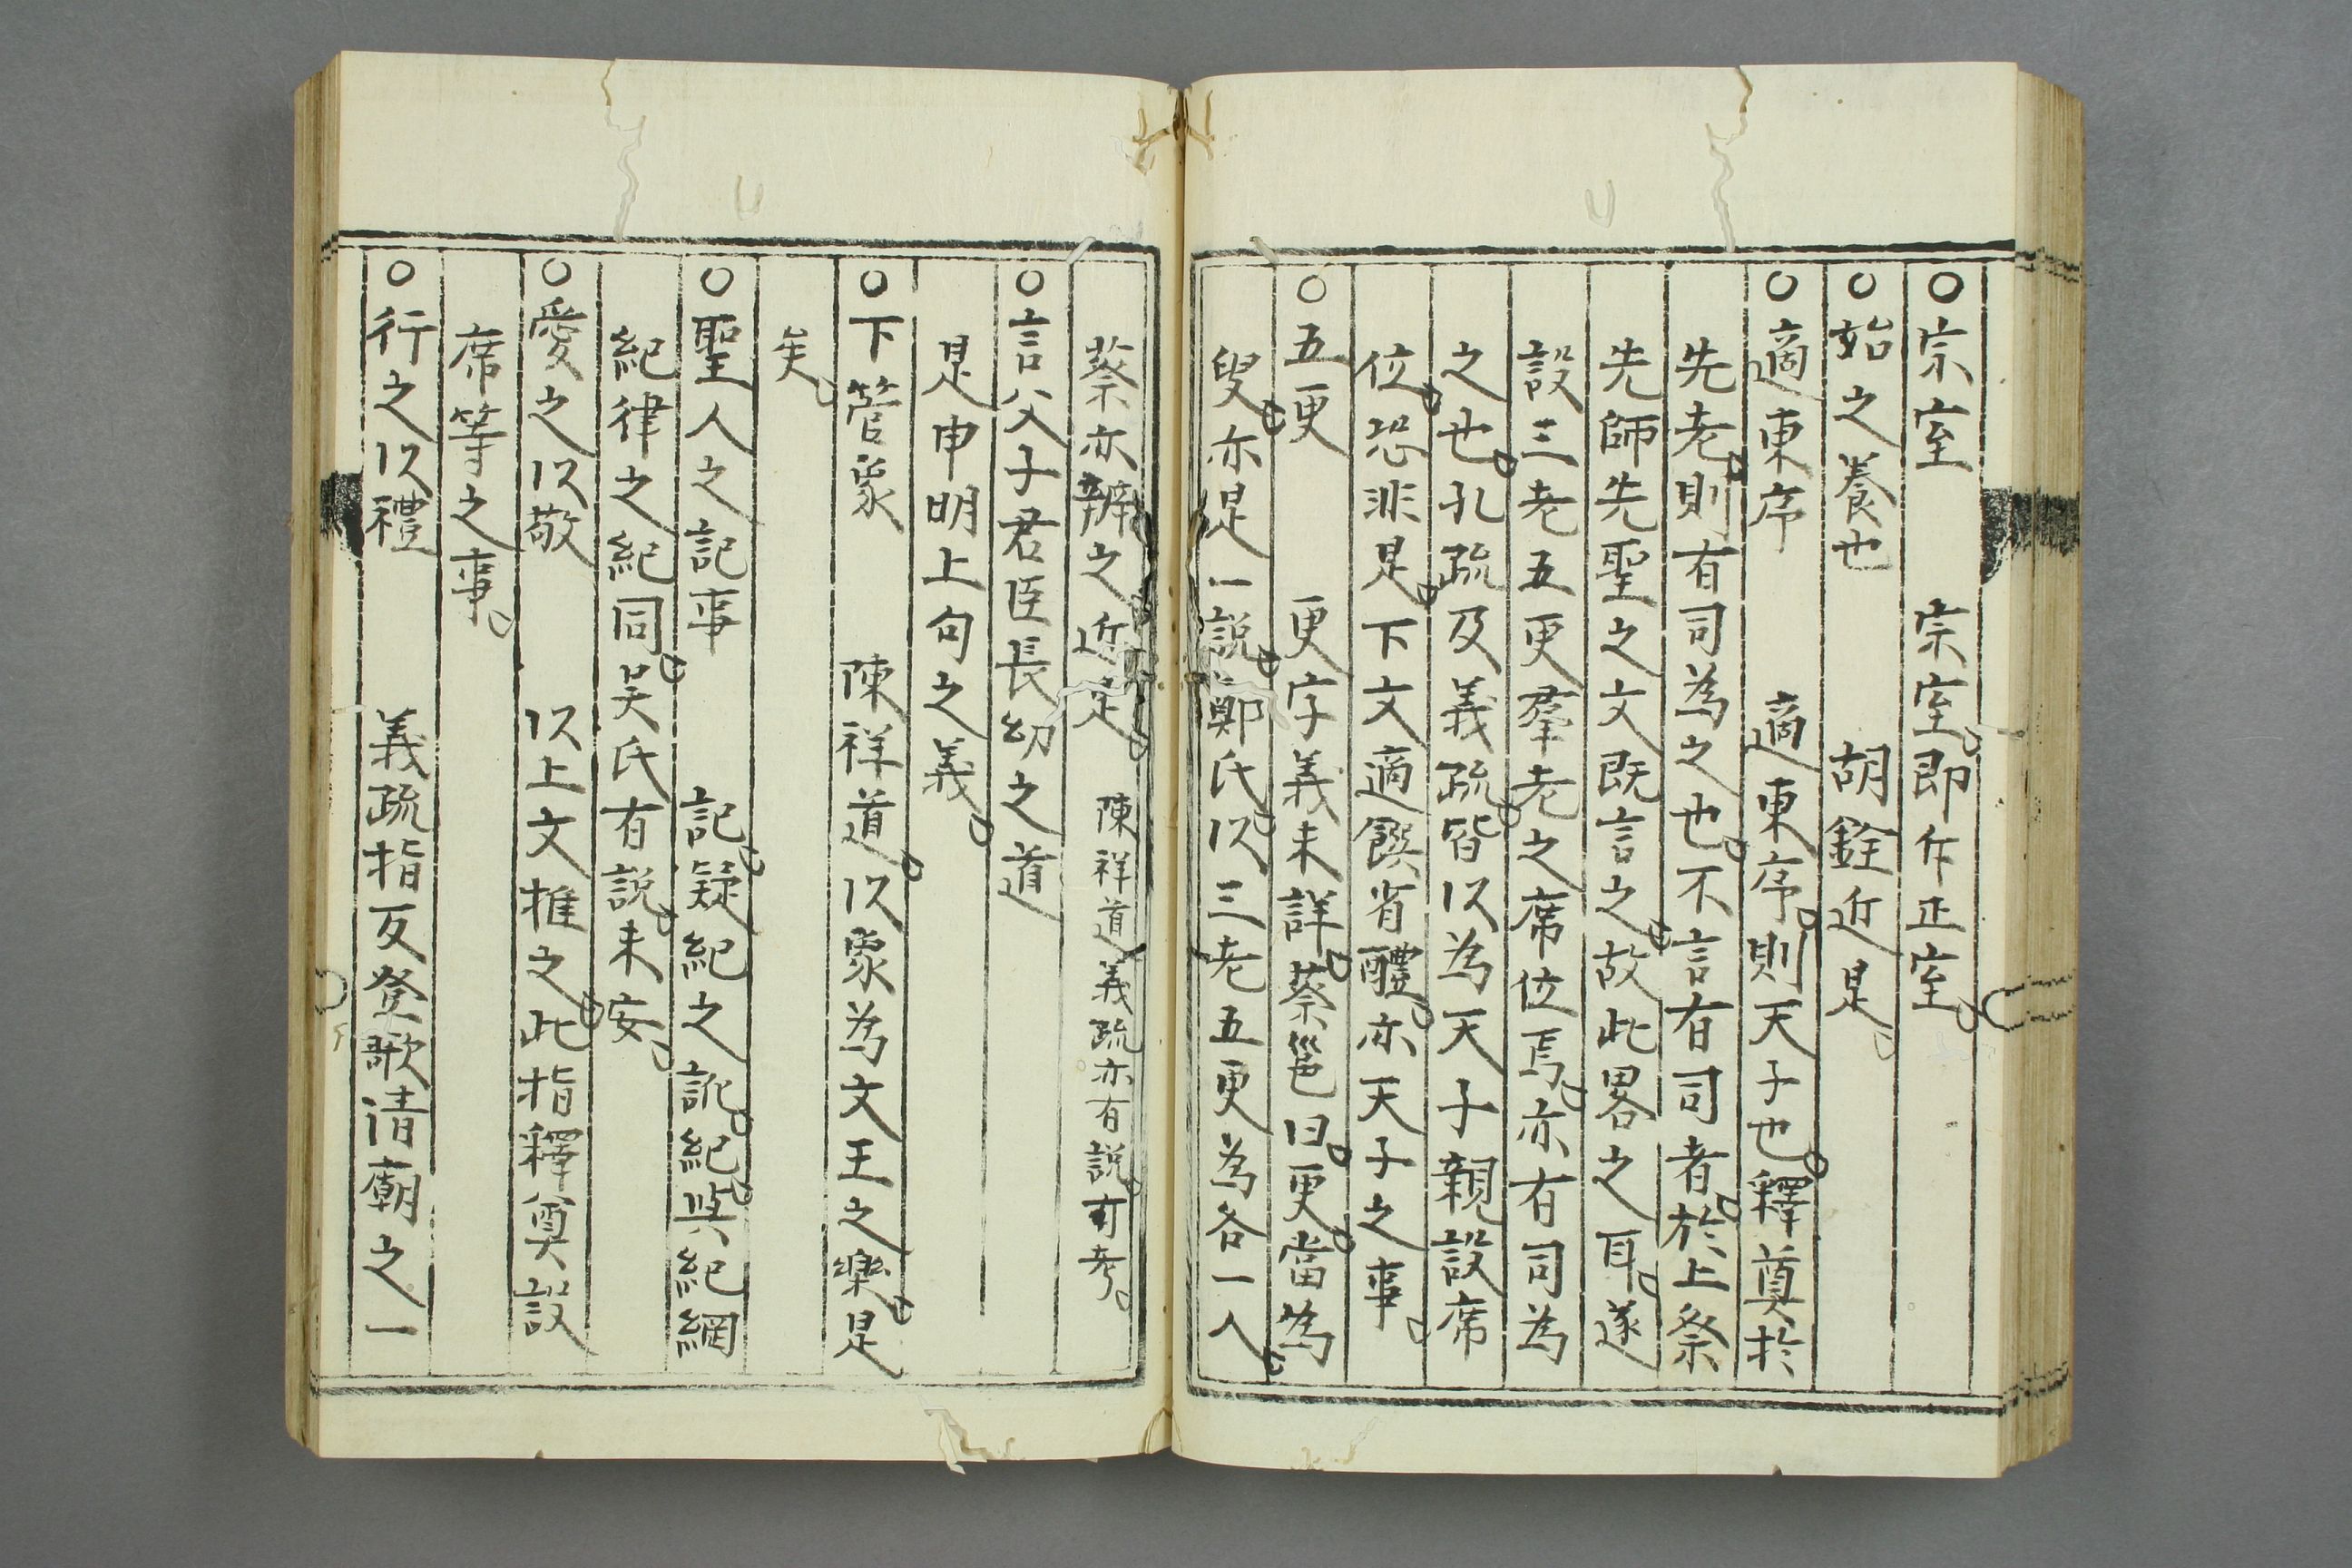 ○宗室　宗室。即乍正室。
○始之養也　胡銓近是。
○適東序　適東序。則天子也。釋奠於
先老。則有司為之也。不言有司者。於上祭
先師先聖之文既言之。故此畧之耳。遂
設三老五更羣老之席位焉。亦有司為
之也。孔疏及義疏。皆以為天子親設席
位。恐非是。下文適饌省醴。亦天子之事。
○五更　更字義未詳。蔡邕曰。更。當為
叟。亦是一說。鄭氏。以三老五更為各一人。
蔡亦辨之。近是。陳祥道義疏亦有說。可考。
○言父子君臣長幼之道
是申明上句之義。
○下管象　陳祥道。以象為文王之樂。是
矣。
○聖人之記事　記。疑紀之訛。紀。與紀綱
紀律之紀同。吴氏有說。未妥。
○愛之以敬　以上文推之。此指釋奠設
席等之事。
○行之以禮　義疏指反登歌清廟之一